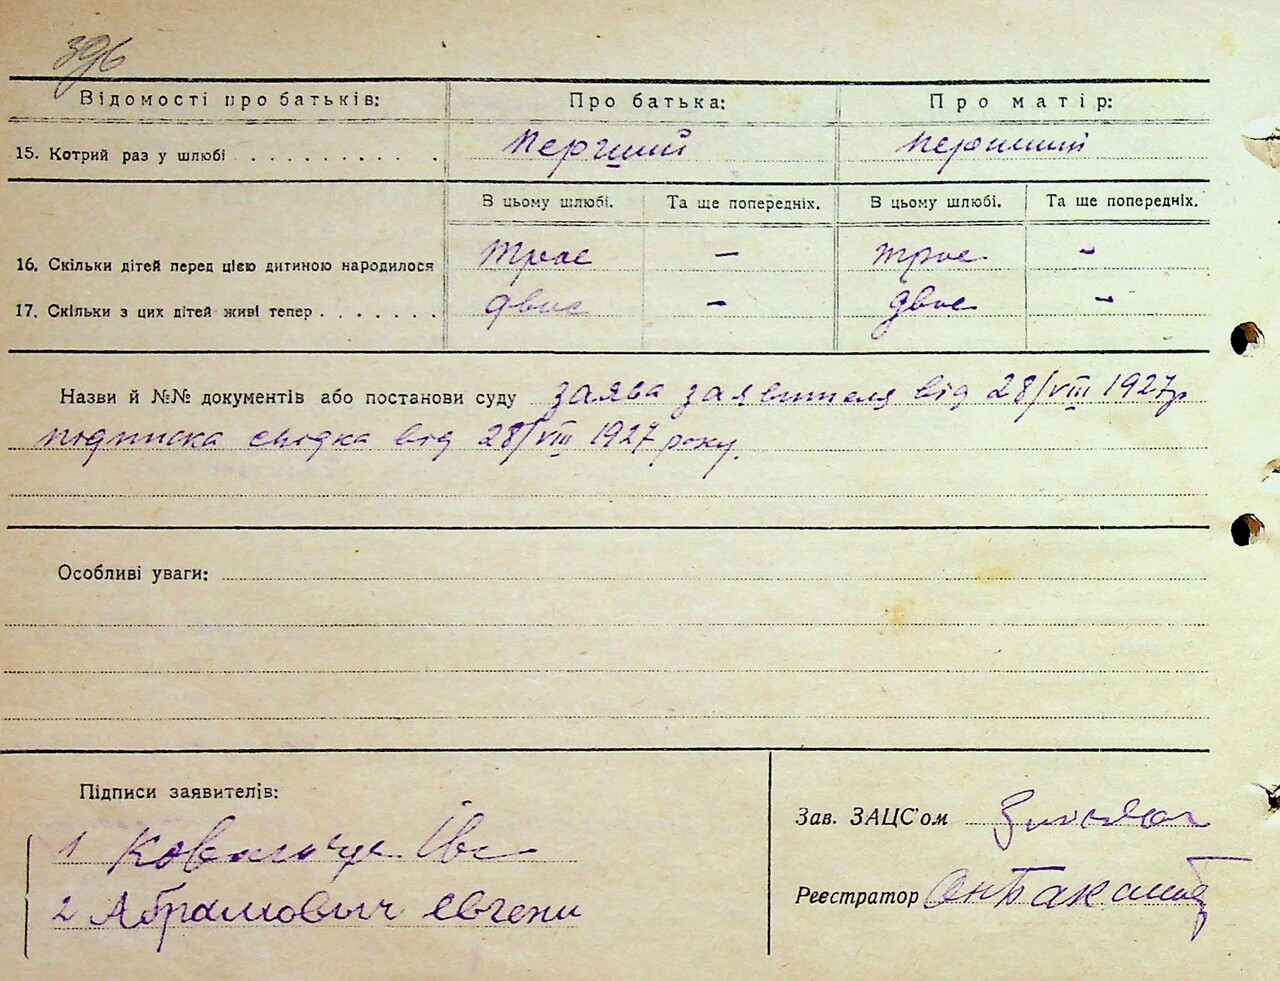 396
Відомості про батьків: Про батька: Про матір:
15. Котрий раз у шлюбі . . . . . . . . . . Перший Перший
В цьому шлюбі. Та ще попередніх. В цьому шлюбі. Та ще попередніх.
16. Скільки дітей перед цією дитиною народилося троє – троє –
17. Скільки з цих дітей живі тепер . . . . . . . двоє – двоє –
Назви й №№ документів або постанови суду заява заявителя від 28/VIII 1927 р
подписка свідка від 28/VIII 1927 року.
Особливі уваги:
Підписи заявителів:
1 Іва
2 Абрамовыч Євгени
Зав. ЗАЦС'ом
Реєстратор